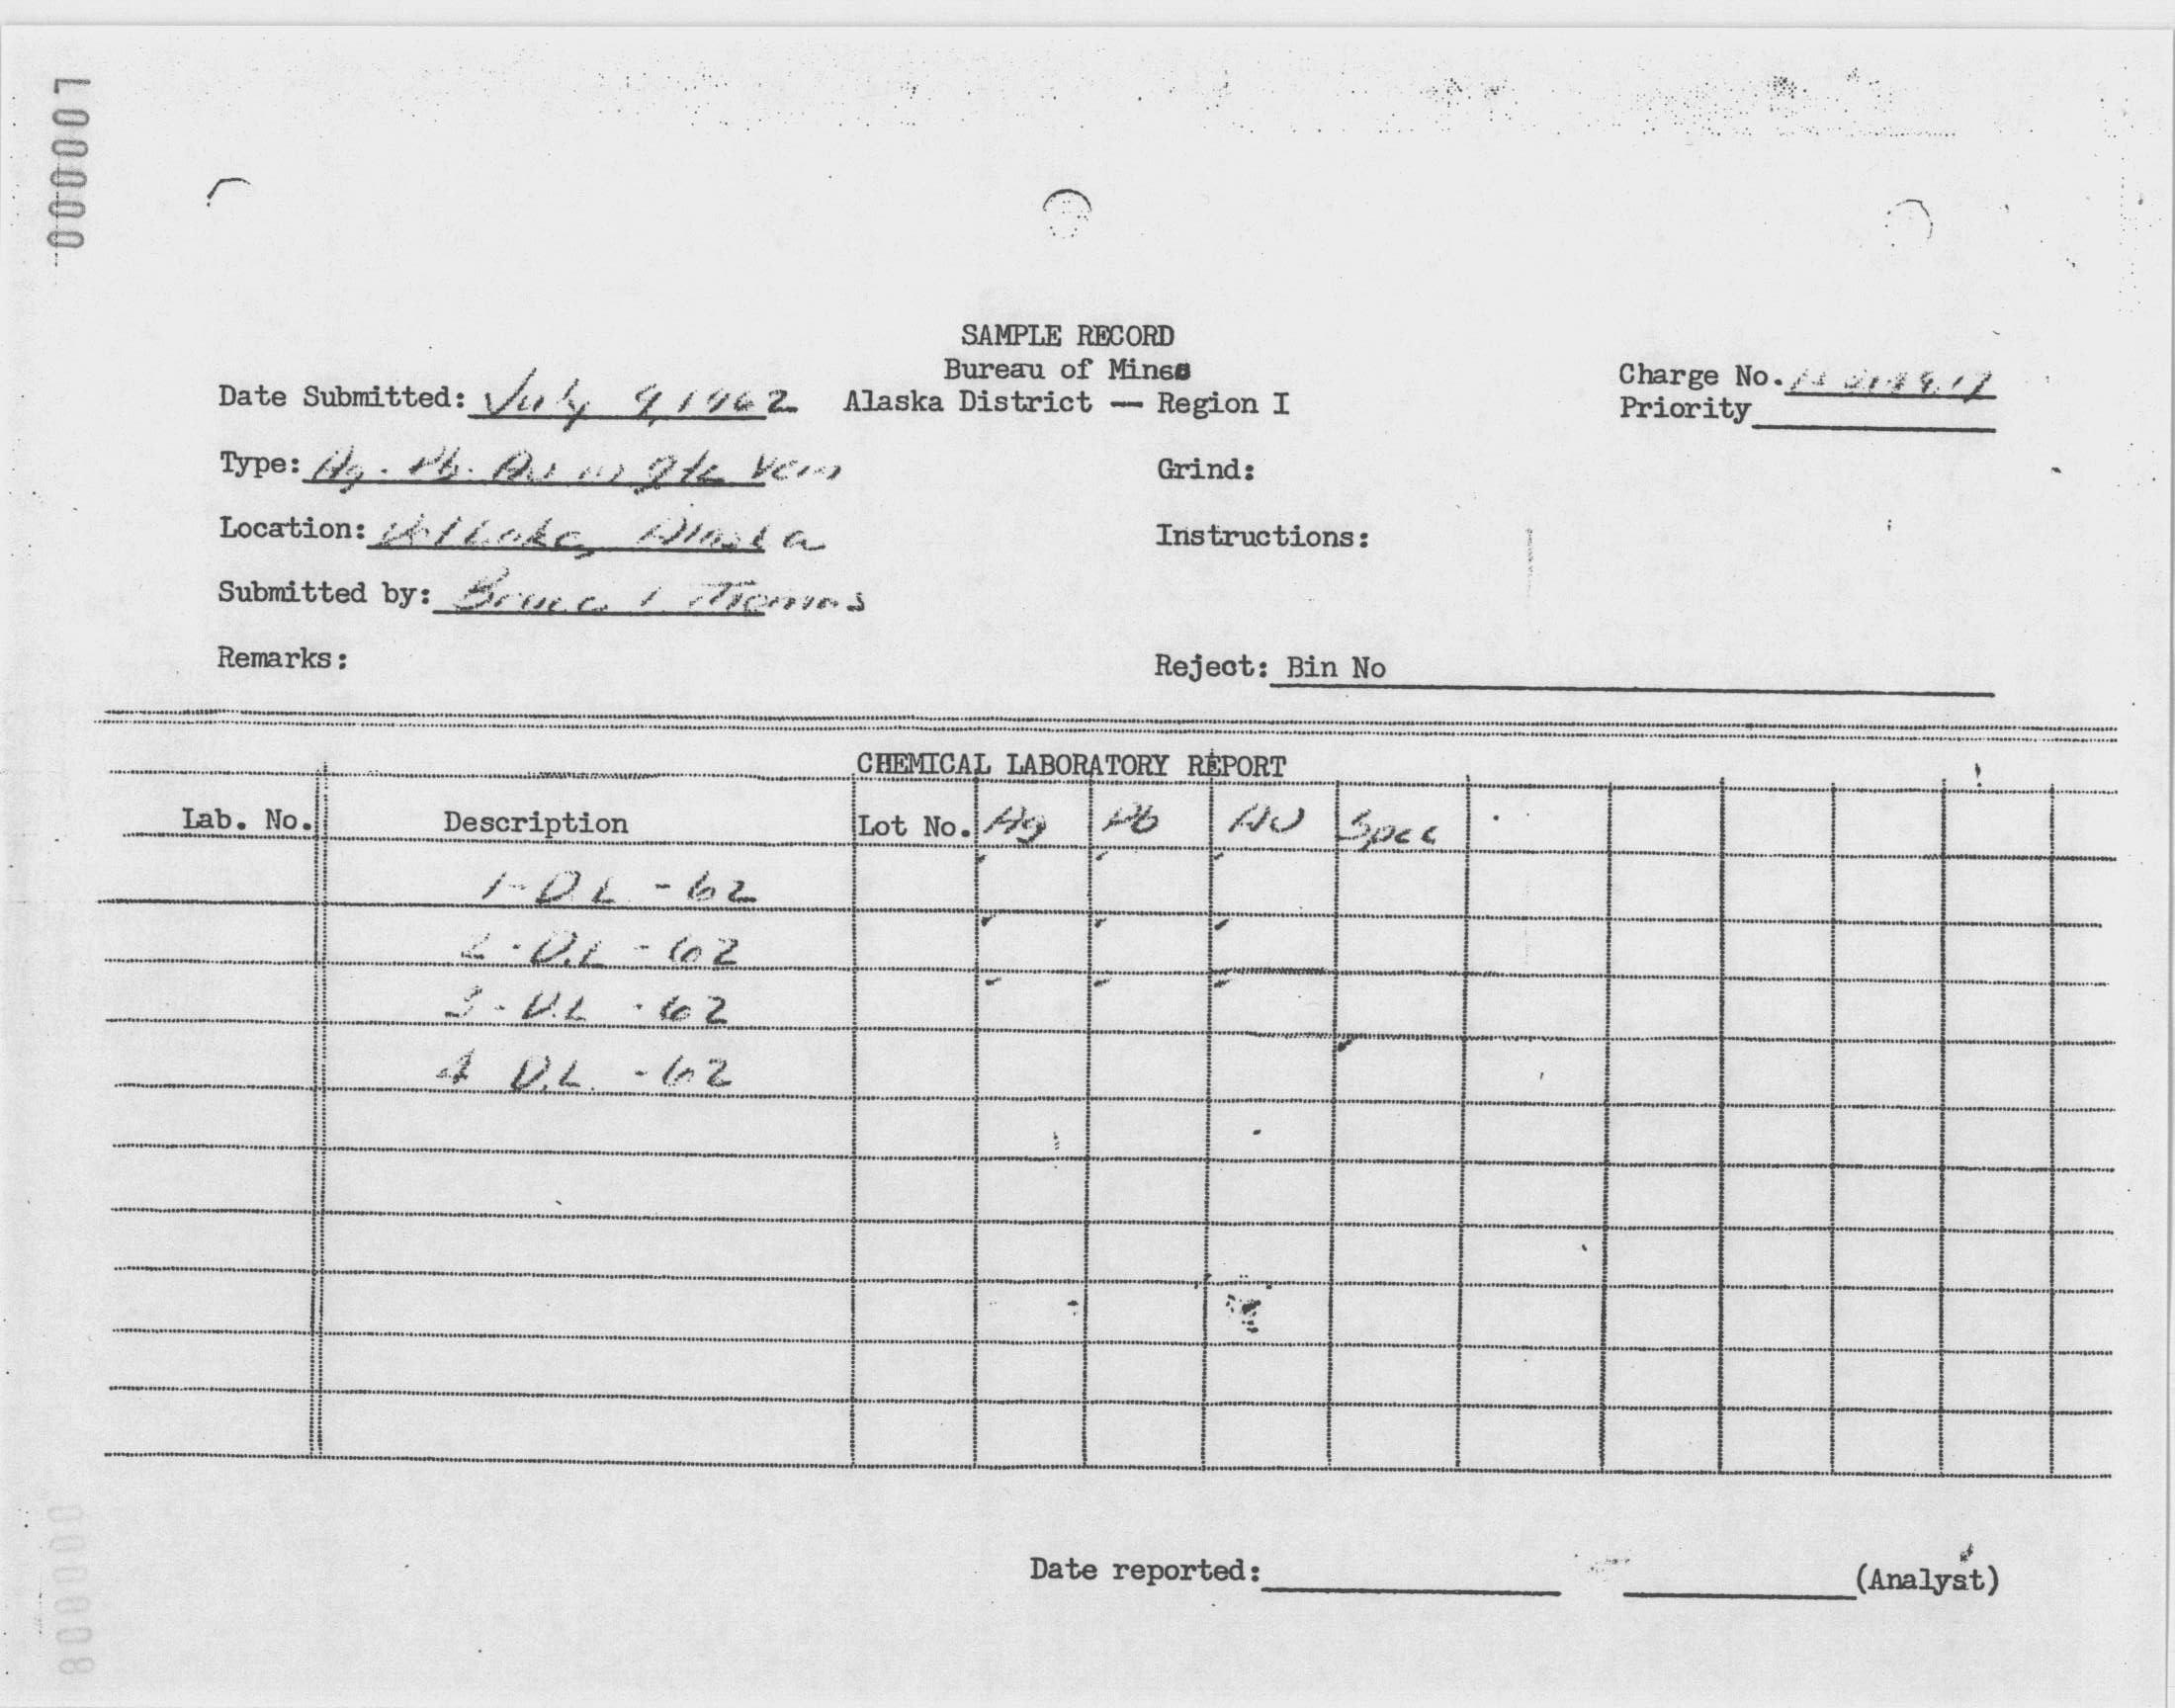 L00000
SAMPLE RECORD
Bureau of Mines
Date Submitted: July 9, 1962 Alaska District — Region I
Charge No.
Priority
Type: Ag. Pb. Au in qtz vein
Grind:
Location: Alaska
Instructions:
Submitted by: Bruce I. Thomas
Remarks:
Reject: Bin No
CHEMICAL LABORATORY REPORT
Lab. No. Description Lot No. Ag Pb Au Spec
1-D.L.-62
2-D.L-62
3-D.L-62
4 D.L.-62
Date reported: (Analyst)